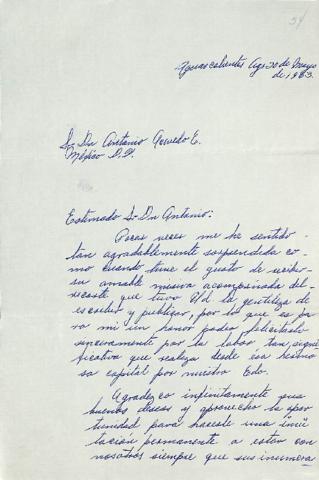 Aguascalientes Ags 20 de Mayo
de 1963.
Sr. Dn Antonio Acevedo E.
México D.F.
Estimado Sr Dn Antonio:
Pocas veces me he sentido
tan agradablemente sorprendida co-
mo cuando tuve el gusto de recibir
su amable misiva acompañada del
recorte que tuvo Ud la gentileza de
escribir y publicar, por lo que es pa-
ra mi un honor poder felicitarlo
sinceramente por la labor tan signi
ficativa que realiza desde esa hermo
sa capital por nuestro Edo.
Agradezco infinitamente sus
buenos deseos y aprovecho la opor
tunidad para hacerle una invi
tación permanente a estar con
nosotros siempre que sus innumera